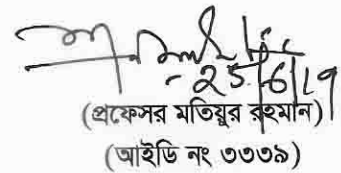 25/6/19
(প্রফেসর মতিয়ুর রহমান)
(আইডি নং ৩৩৩৯)